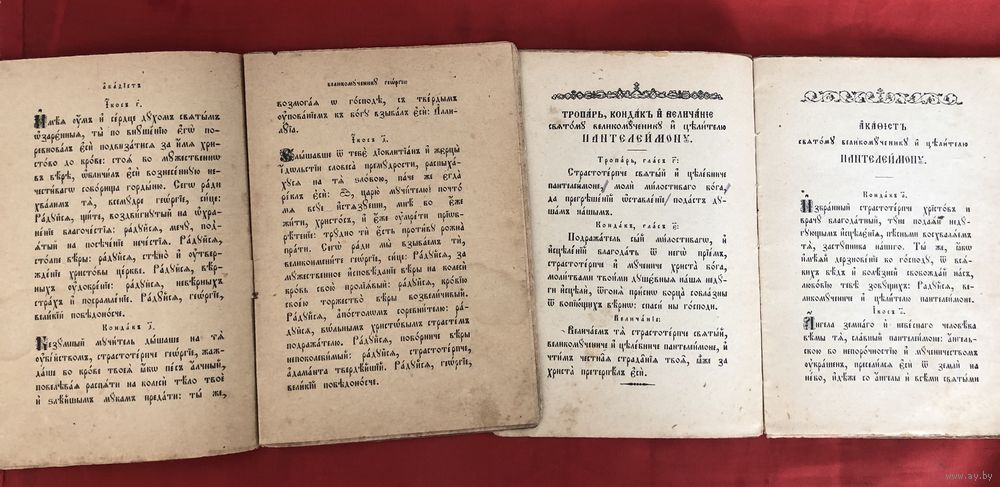 АКАѲІСТЪ
Їкосъ є҃.
Имѣѧ ᲂумъ и҆ сердце дꙋхомъ свѧтымъ
ѡ҆зарєнныѧ, ты по внꙋшенїю є҆гѡ по-
ревновалъ є҆си подвизатисѧ за и҆мѧ хрис-
тово до крове: стоѧ бо мꙋжественнѡ
въ вѣрѣ, ѡ҆бличи въ вознесеннꙋю не-
честивагѡ соборища гордыню. Сегѡ ради
хвалимъ тѧ, всемꙋдре геѡргїе, сице:
Радꙋйсѧ, щите, воздвигнꙋтый на ѡ҆хра-
неніе благочестїѧ: радꙋйсѧ, мечꙋ, под-
ѧтый на посѣченїе нечестїѧ. Радꙋйсѧ,
столпе вѣры: радꙋйсѧ, стѣно и҆ ᲂутвер-
жденїе христовы церкве. Радꙋйсѧ, вѣр-
ныхъ ᲂудобренїе: радꙋйсѧ, невѣрныхъ
страхъ и҆ посрамленїе. Радꙋйсѧ, геѡргїе,
великїй побѣдоносче.
Кондакъ ѕ҃.
Безꙋмный мꙋчитель дышаше на тѧ
ᲂубїйствомъ, страстотерпче геѡргїе, жаж-
даше бо крове твоеѧ ꙗ҆кѡ песъ алчный,
повелѣвая распѧти на колеси тѣло твоѐ
и҆ ѕлѣйшымъ мꙋкамъ предати: ты же,
ВЕЛИКОМꙊЧЕНИКꙊ ГЕѠРГЇЮ
возмогаѧ ѡ҆ господѣ, съ твердымъ
ᲂупованїемъ къ богꙋ взывалъ є҆си: Алли-
лꙋїа.
Їкосъ ѕ҃.
Слышавше ѡ҆ тебѣ дїоклитїанъ и҆ жерцы
и҆дѡльстїи словеса премꙋдрости, распыха-
хꙋсѧ на тѧ ѕлобою, паче же є҆гда
реклъ є҆си: ѽ, царю мꙋчителю! почто
мѧ всꙋе и҆стѧзꙋеши, мнѣ бо є҆же
жити, христосъ, и҆ є҆же ᲂумрети прїѡб-
рѣтенїе: трꙋдно ти є҆сть противꙋ рожна
прати. Сегѡ ради мы взываемъ ти,
великоимените геѡргїе, сице: Радꙋйсѧ, за
мꙋжественное и҆сповѣданїе вѣры на колеси
кровь свою пролїѧвый: радꙋйсѧ, кровїю
своею торжество вѣры возвеличивый.
Радꙋйсѧ, а҆постоловъ соревнителю: ра-
дꙋйсѧ, вѡльнымъ христѡвымъ страстемъ
подражателю. Радꙋйсѧ, поборниче вѣры
непоколебимый: радꙋйсѧ, страстотерпче,
адаманта твердѣйшїй. Радꙋйсѧ, геѡргїе,
великїй побѣдоносче.
ТРОПАРЬ, КОНДАКЪ И҆ ВЕЛИЧАНЇЕ
СВѦТОМꙊ ВЕЛИКОМꙊЧЕНИКꙊ И҆ ЦѢЛИТЕЛЮ
ПАНТЕЛЕИМОНꙊ.
Тропарь, гласъ г҃:
Страстотерпче свѧтый и҆ цѣлебниче
пантелеимоне, моли милостиваго бога,
да прегрѣшенїй ѡ҆ставленїе подастъ дꙋ-
шамъ нашымъ.
Кондакъ, гласъ є҃:
Подражатель сый милостивагѡ, и҆
и҆сцѣленїй благодать ѿ негѡ прїемъ,
страстотерпче и҆ мꙋчениче христа бога,
молитвами твоими дꙋшевныѧ нашѧ недꙋ-
ги и҆сцѣли, ѿгонѧ приснѡ борца соблазны
ѿ вопїющихъ вѣрнѡ: спаси ны господи.
Величанїе:
Величаемъ тѧ страстотерпче свѧтый,
великомꙋчениче и҆ цѣлебниче пантелеимоне, и҆
чтимъ честнаѧ страданїѧ твоѧ, ꙗ҆же за
христа претерпѣлъ є҆си.
АКАѲІСТЪ
СВѦТОМꙊ ВЕЛИКОМꙊЧЕНИКꙊ И҆ ЦѢЛИТЕЛЮ
ПАНТЕЛЕИМОНꙊ.
Кондакъ а҃.
Избранный страстотерпче христовъ и҆
врачꙋ благодатный, тꙋне подаѧй недꙋ-
гꙋющымъ и҆сцѣленїѧ, пѣсньми восхвалѧемъ
тѧ, застꙋпника нашего. Ты же, ꙗ҆кѡ
и҆мѣѧй дерзновенїе ко господꙋ, ѿ всѧ-
кихъ бѣдъ и҆ болѣзней свобождай насъ,
любовїю тебѣ зовꙋщихъ: Радꙋйсѧ, вели-
комꙋчениче и҆ цѣлителю пантелеимоне.
Їкосъ а҃.
Ангела земнаго и҆ небеснаго человѣка
вѣмы тѧ, славный пантелеимоне: а҆нгель-
скою бо непорочностїю и҆ мꙋченичествомъ
ᲂукрашенъ, преселилсѧ є҆си ѿ земли на
небо, и҆дѣже со а҆нгелы и҆ всѣми свѧтыми
www.ay.by